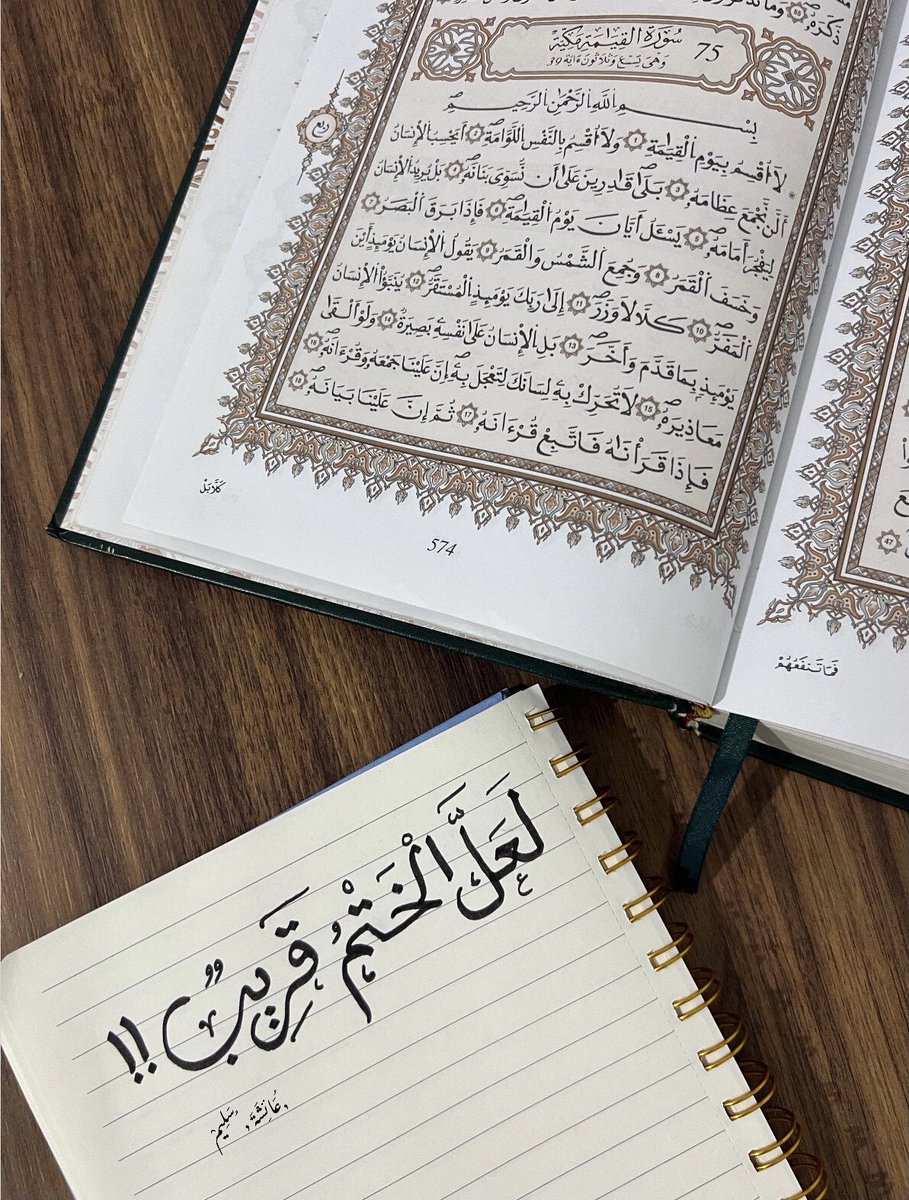 ذَكَرَهُۥ 55 وَمَا تَذْكُرُونَ
75 سُورَةُ الْقِيَٰمَةِ مَكِّيَّة
وَهِيَ تِسْعٌ وَثَلَاثُونَ ءَايَة 39
بِسْمِ اللَّهِ الرَّحْمَٰنِ الرَّحِيمِ
ربع
لَا أُقْسِمُ بِيَوْمِ الْقِيَٰمَةِ 1 وَلَا أُقْسِمُ بِالنَّفْسِ اللَّوَّامَةِ 2 أَيَحْسِبُ الْإِنسَٰنُ
أَلَّن نَّجْمَعَ عِظَامَهُۥ 3 بَلَىٰ قَٰدِرِينَ عَلَىٰ أَن نُّسَوِّيَ بَنَانَهُۥ 4 بَلْ يُرِيدُ الْإِنسَٰنُ
لِيَفْجُرَ أَمَامَهُۥ 5 يَسْـَٔلُ أَيَّانَ يَوْمُ الْقِيَٰمَةِ 6 فَإِذَا بَرَقَ الْبَصَرُ 7
وَخَسَفَ الْقَمَرُ 8 وَجُمِعَ الشَّمْسُ وَالْقَمَرُ 9 يَقُولُ الْإِنسَٰنُ يَوْمَئِذٍ أَيْنَ
الْمَفَرُّ 10 كَلَّا لَا وَزَرَ 11 إِلَىٰ رَبِّكَ يَوْمَئِذٍ الْمُسْتَقَرُّ 12 يُنَبَّؤُا الْإِنسَٰنُ
يَوْمَئِذٍ بِمَا قَدَّمَ وَأَخَّرَ 13 بَلِ الْإِنسَٰنُ عَلَىٰ نَفْسِهِۦ بَصِيرَةٌ 14 وَلَوْ أَلْقَىٰ
مَعَاذِيرَهُۥ 15 لَا تُحَرِّكْ بِهِۦ لِسَانَكَ لِتَعْجَلَ بِهِۦ إِنَّ عَلَيْنَا جَمْعَهُۥ وَقُرْءَانَهُۥ 16
فَإِذَا قَرَأْنَٰهُ فَاتَّبِعْ قُرْءَانَهُۥ 17 ثُمَّ إِنَّ عَلَيْنَا بَيَانَهُۥ 18
كَلَّا بَلْ
574
47
فَمَا تَنفَعُهُمْ
لَعَلَّ الْخَتْمُ قَرِيبٌ !!
عَائِشَة سَلِيم